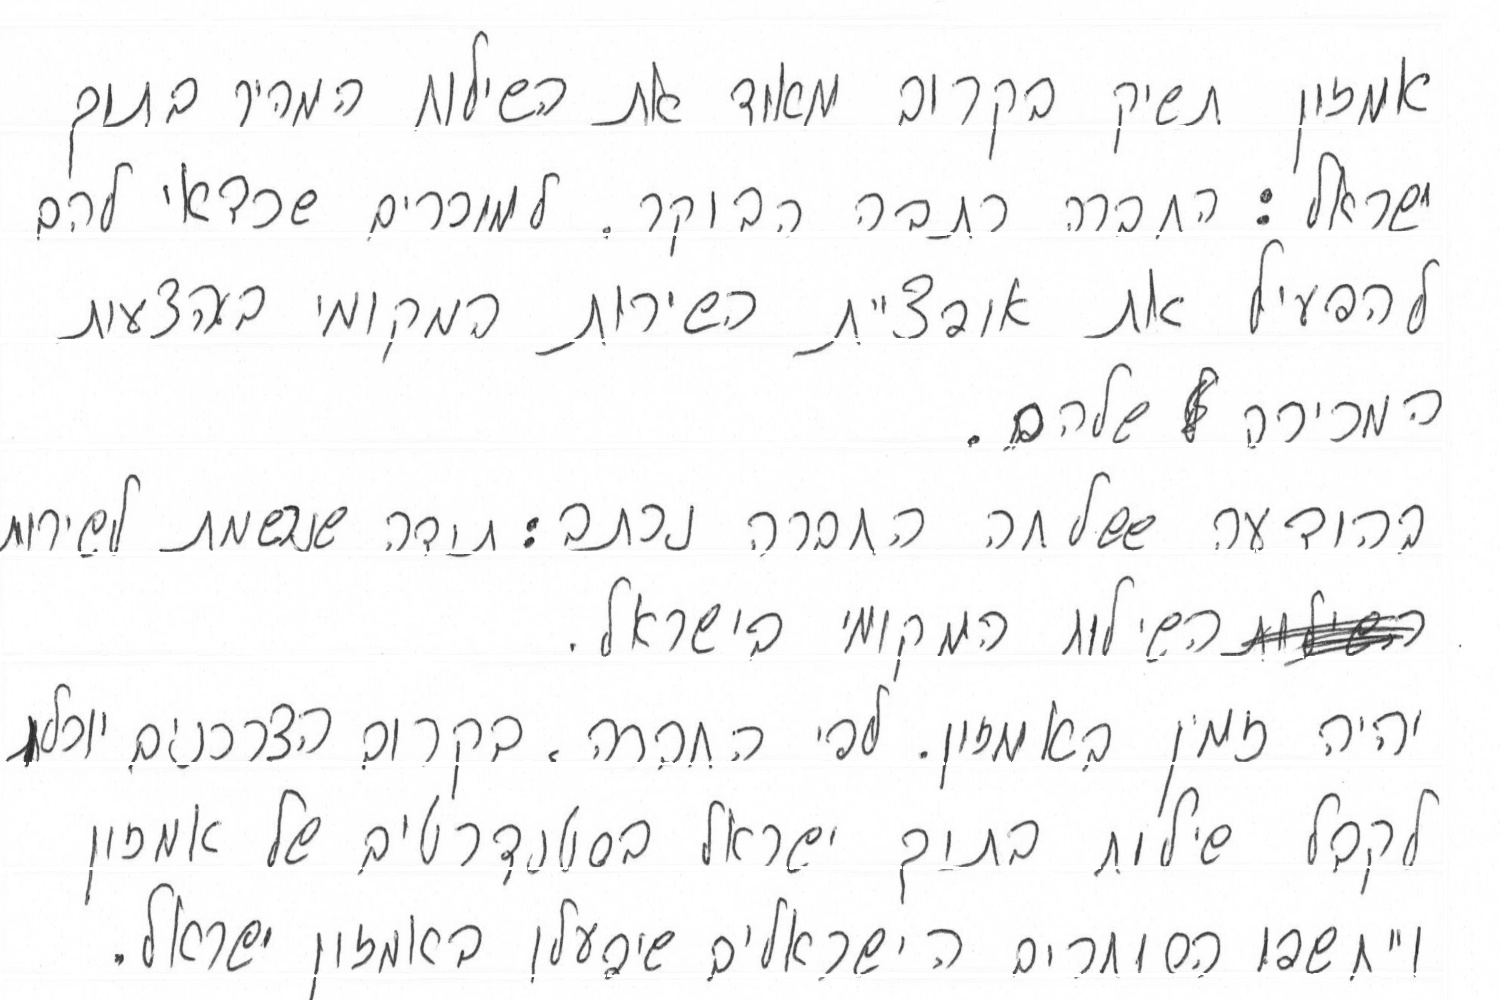 אמזון תשיק בקרוב מאוד את השילוח המהיר בתוך
ישראל: החברה כתבה הבוקר. למוכרים שכדאי להם
להפעיל את אופציית השירות המקומי בהצעות
המכירה שלהם.
בהודעה ששלחה החברה נכתב: תודה שנרשמת לשירות
השילוח המקומי בישראל.
יהיה זמין באמזון. לפי החברה. בקרוב הצרכנים יוכלו
לקבל שילוח בתוך ישראל בסטנדרטים של אמזון
וייחשפו הסוחרים הישראלים שיפעלו באמזון ישראל.